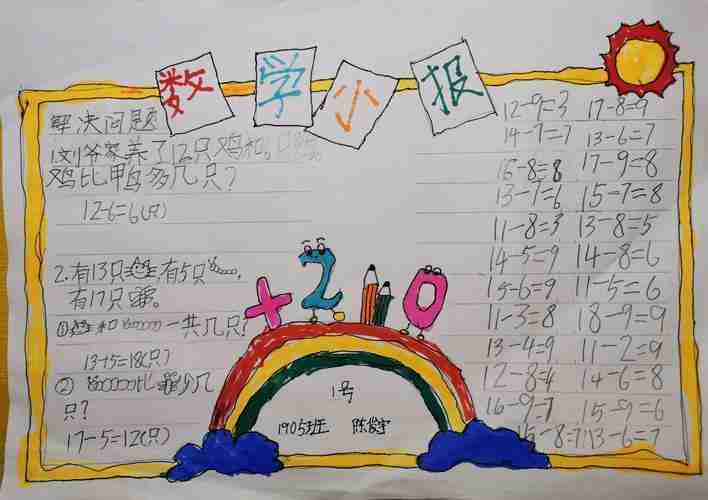 数学小报
解决问题
1刘爷家养了12只鸡和
鸡比鸭多几只?
12-6=6(只)
2.有13只,有5只,
有17只。
①和一共几只?
13+5=18(只)
②比少几
只?
17-5=12(只)
+20
1号
1905班 陈
12-9=3 17-8=9
14-7=7 13-6=7
16-8=8 17-9=8
13-7=6 15-7=8
11-8=3 13-8=5
14-5=9 14-8=6
15-6=9 11-5=6
11-3=8 18-9=9
13-4=9 11-2=9
12-8=4 14-6=8
16-9=7 15-9=6
15-8=7 13-6=7